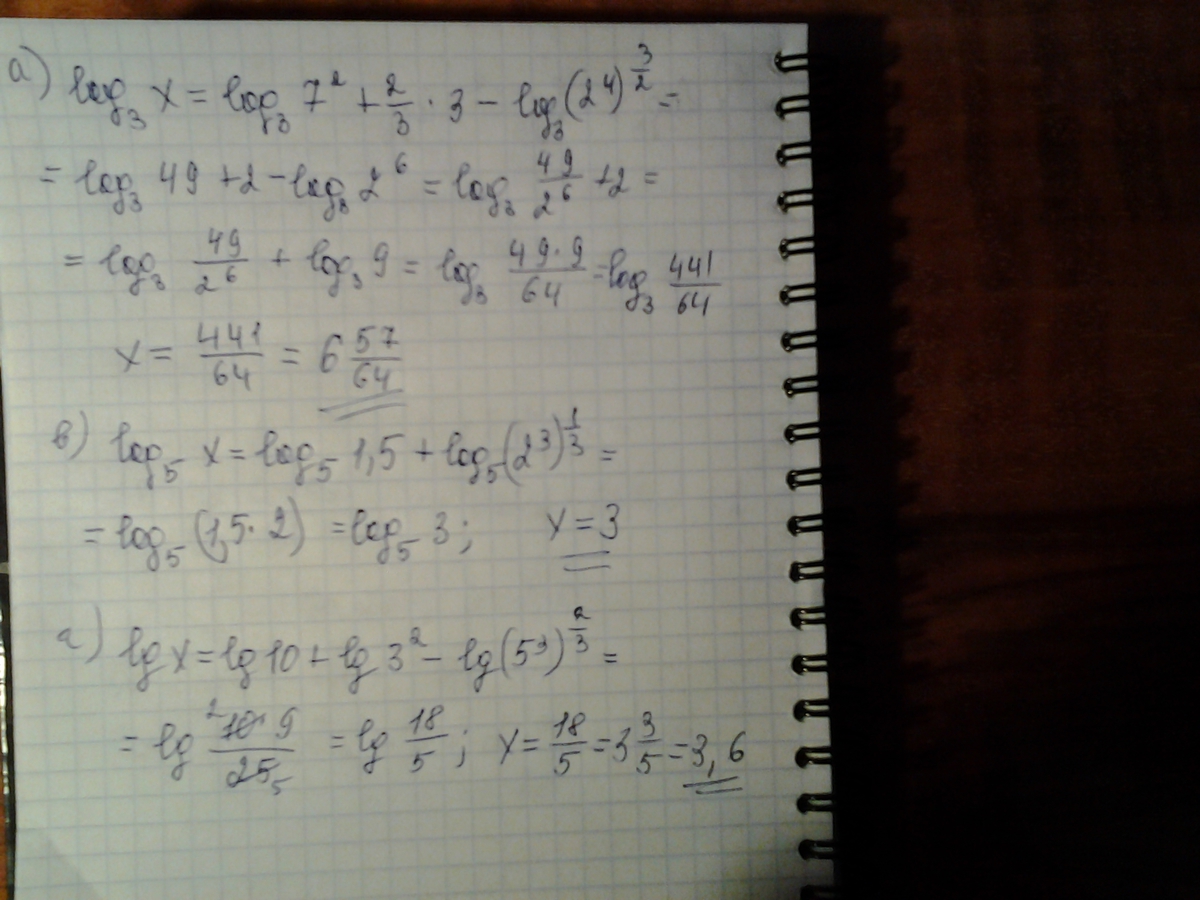 а) log₃ x = log₃ 7² + 2/3 · 3 − log₃ (2⁴)^(3/2) =
= log₃ 49 + 2 − log₃ 2⁶ = log₃ 49/2⁶ + 2 =
= log₃ 49/2⁶ + log₃ 9 = log₃ 49·9/64 = log₃ 441/64
x = 441/64 = 6 57/64
в) log₅ x = log₅ 1,5 + log₅ (2³)^(1/3) =
= log₅ (1,5 · 2) = log₅ 3; x = 3
а) lg x = lg 10 + lg 3² − lg (5³)^(2/3) =
= lg ²10·9/25₅ = lg 18/5; x = 18/5 = 3 3/5 = 3,6